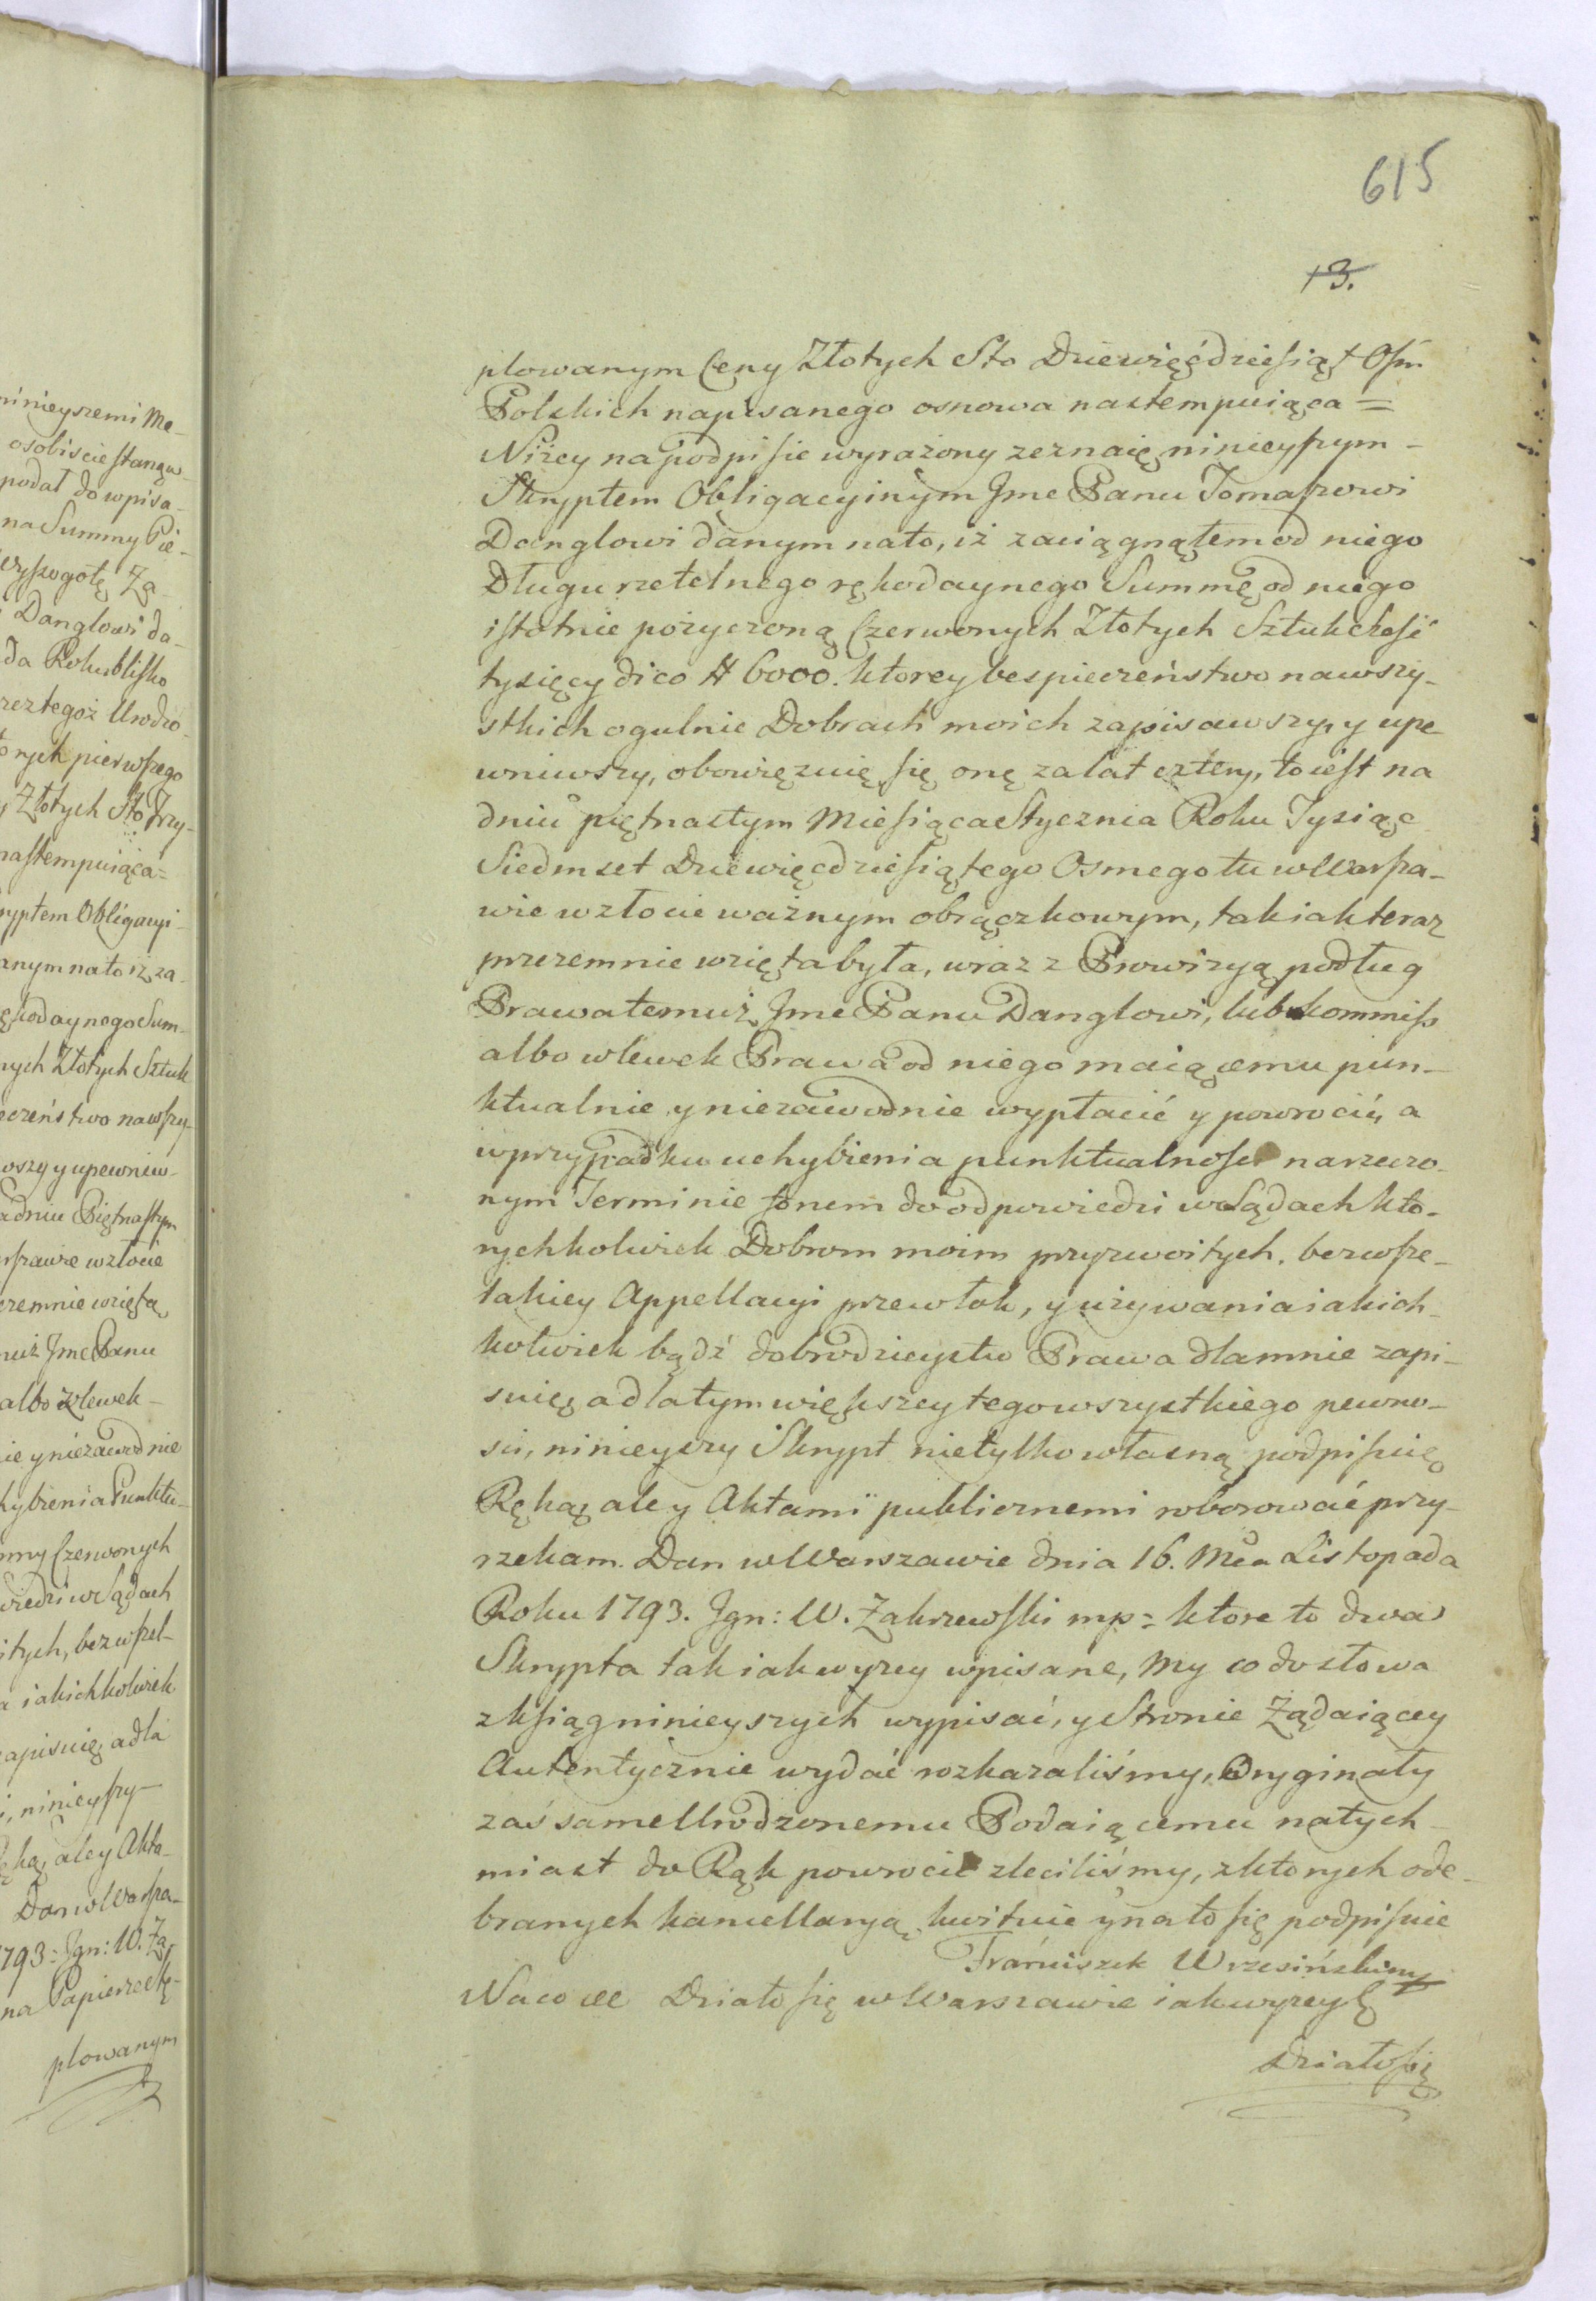 615
13.
plowanym Ceny Złotych Sto Dziewięćdziesiąt Ośm
Polskich napisanego osnowa nastempuiąca =
Niżey na podpisie wyrażony zeznaię ninieyszym -
Skryptem Obligacyinym Jmc Panu Tomaszowi
Danglowi danym na to, iż zaciągnąłem od niego
Długu rzetelnego rękodaynego Summę od niego
istotnie pożyczoną Czerwonych Złotych Sztuk cheść
tysięcy dico # 6000. ktorey bespieczeństwo na wszy-
stkich ogulnie Dobrach moich zapisawszy, y upe-
wniwszy, obowięzuię się onę za lat cztery, to iest na
dniu piętnastym Miesiąca Stycznia Roku Tysiąc
Siedmset Dziewięcdziesiątego Osmego tu w Warsza-
wie w złocie ważnym obrączkowym, tak iak teraz
przezemnie wzięta była, wraz z Prowizyą podług
Prawa temuż Jmc Panu Danglowi, lub kommiss
albo wlewek Prawa od niego maiącemu pun-
ktualnie y niezawodnie wypłacić y powrocić, a
w przypadku uchybienia punktualności na rzeczo-
nym Terminie forum do odpowiedzi w Sądach kto-
rychkolwiek Dobrom moim przyzwoitych, bez wsze-
lakiey Appellacyi przewłok, y używania iakich-
kolwiek bądź dobrodzieystw Prawa dla mnie zapi-
suię, a dla tym większey tego wszystkiego pewno-
ści, ninieyszy Skrypt nie tylko własną podpisuię
Ręką, ale y Aktami publicznemi roborować przy-
rzekam. Dan w Warszawie dnia 16. Mca Listopada
Roku 1793. Ign: W. Zakrzewski mp = ktore to dwa
Skrypta tak iak wyżey wpisane, My co do słowa
z ksiąg ninieyszych wypisać, y Stronie Żądaiącey
Autentycznie wydać rozkazaliśmy, Oryginały
zaś same Urodzonemu Podaiącemu natych-
miast do Rąk powrocić zleciliśmy, z ktorych ode-
branych kancellaryą kwituie y na to się podpisuie
Franciszek Wrzesiński mp
Na co etc Działo się w Warszawie iak wyżey
Działo się
ninieyszemi Me-
osobiscie stanąw-
podał do wpisa-
na Summy Pie-
Danglowi da-
da Roku blisko
rzez tegoż Urodzo-
to rych pierwszego
Złotych Sto Trzy-
nastempuiąca =
ryptem Obligacyi-
anym na to iż za-
ękodaynego Sum-
nych Złotych Sztuk
eczeństwo na wszy-
wszy y upewniw-
a dniu Piętnastym
rszawie w złocie
zemnie wzięta
muż Jmc Panu
albo wlewek -
ie y niezawodnie
hybienia Punktu-
mmy Czerwonych
wiedzi w Sądach
itych, bez wszel-
a iakichkolwiek
zapisuię, a dla
i, ninieyszy -
ęką, ale y Akta-
Dan w Warsza-
1793 = Ign: W. Za-
na Papierze stę-
plowanym